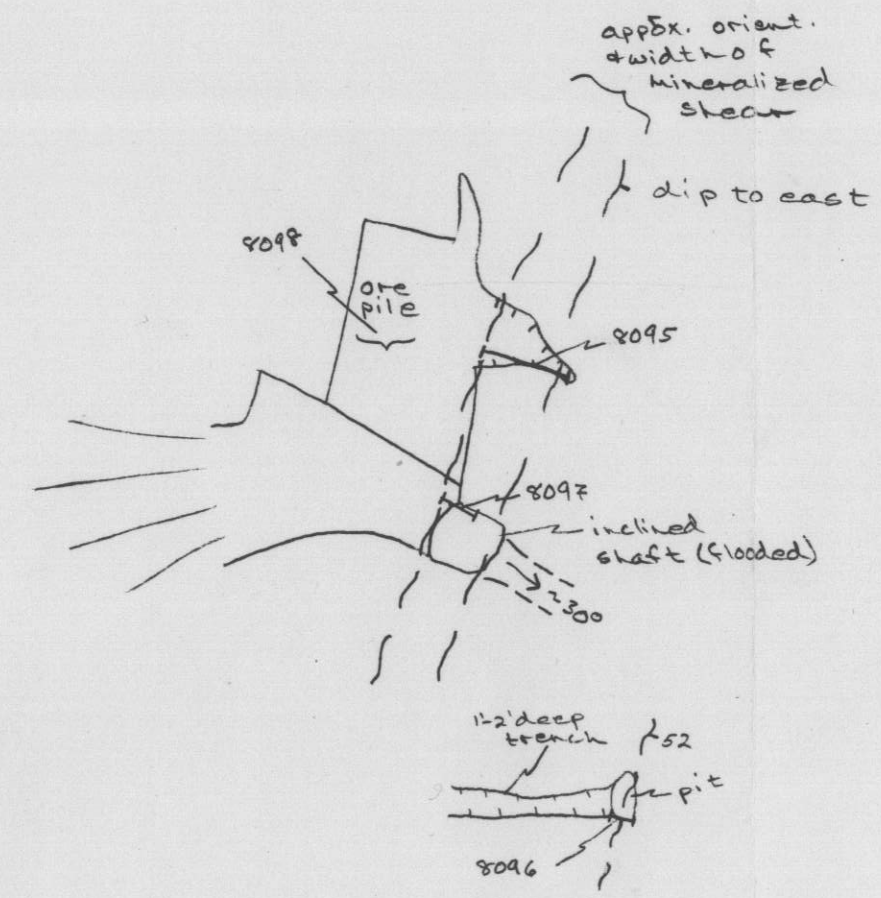 appox. orient.
& width of
mineralized
shear
dip to east
8098
ore
pile
8095
8097
inclined
shaft (flooded)
~30°
1'-2' deep
trench
52
pit
8096